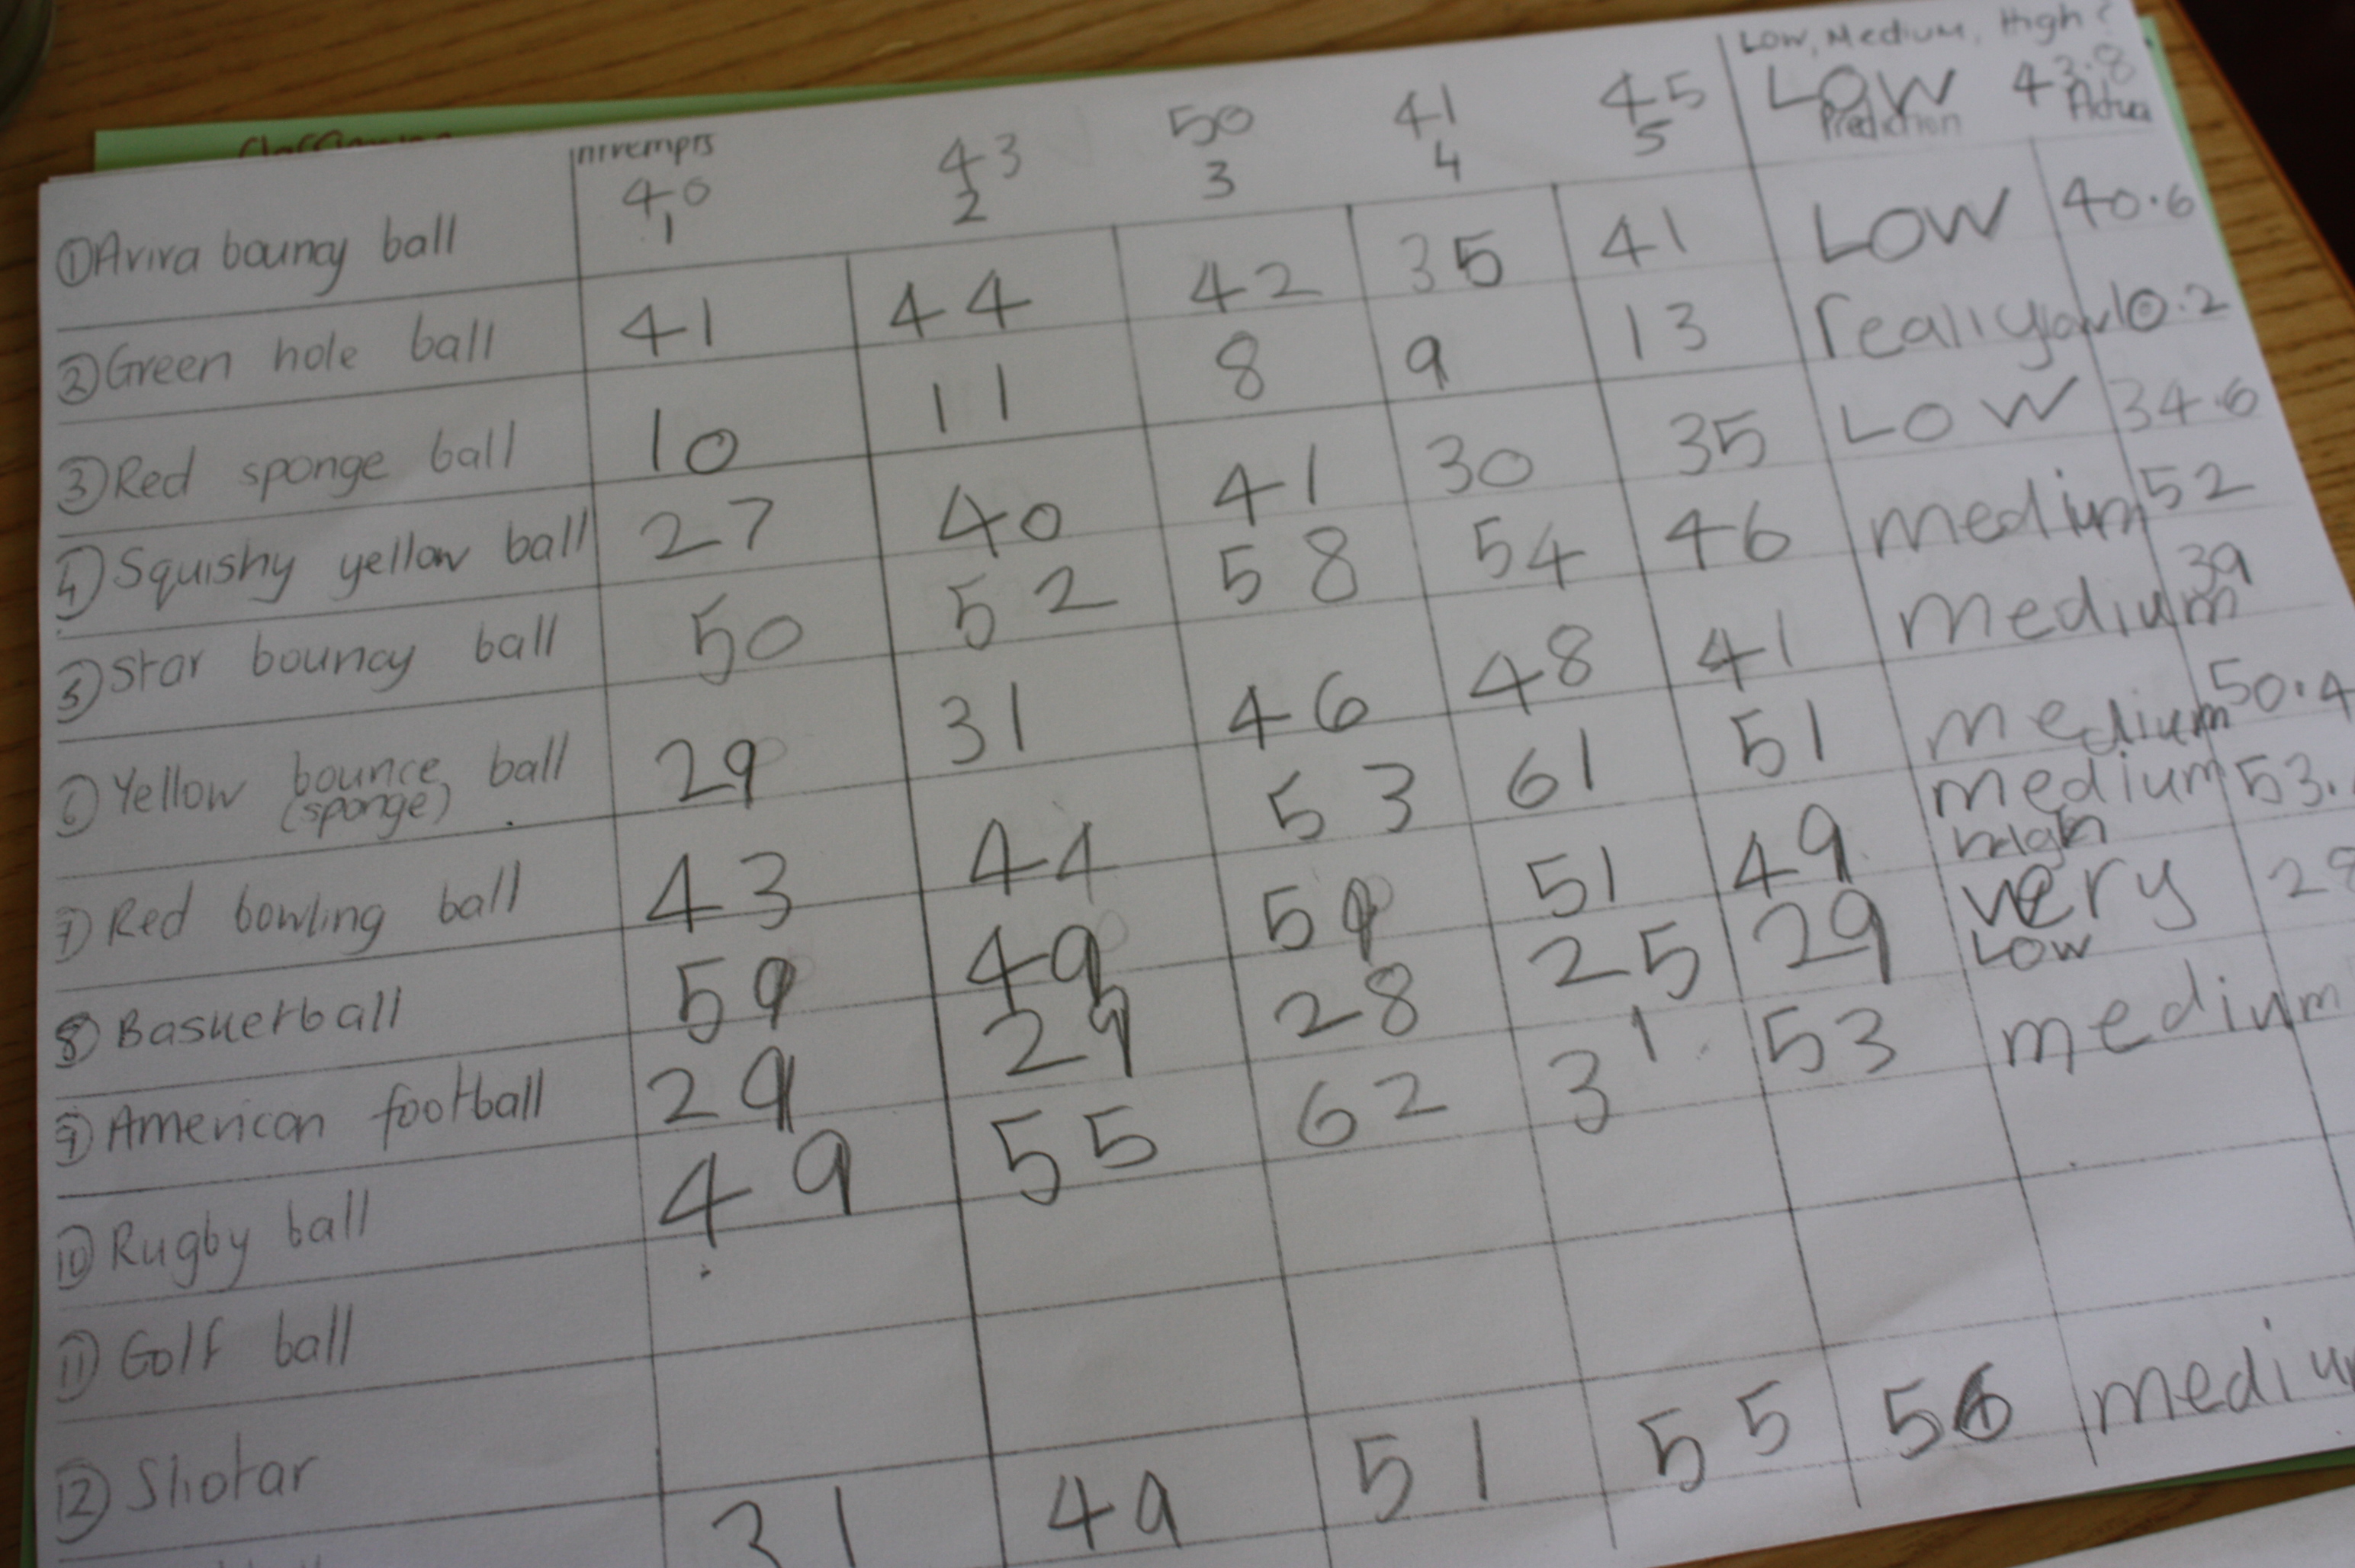 Low, Medium, High?
Attempts 40 43 50 41 45 LOW 43.8
1 2 3 4 5 Prediction Actua
① Aviva bouncy ball
② Green hole ball 41 44 42 35 41 LOW 40.6
③ Red sponge ball 10 11 8 9 13 really low 10.2
④ Squishy yellow ball 27 40 41 30 35 LOW 34.6
⑤ Star bouncy ball 50 52 58 54 46 medium 52
⑥ Yellow bounce ball 29 31 46 48 41 medium 39
(sponge)
⑦ Red bowling ball 43 44 53 61 51 medium 50.4
⑧ Basketball 59 49 59 51 49 medium 53.
high
⑨ American football 29 29 28 25 29 very
LOW
⑩ Rugby ball 49 55 62 31 53 medium
⑪ Golf ball
⑫ Sliotar
31 49 51 55 56 mediu